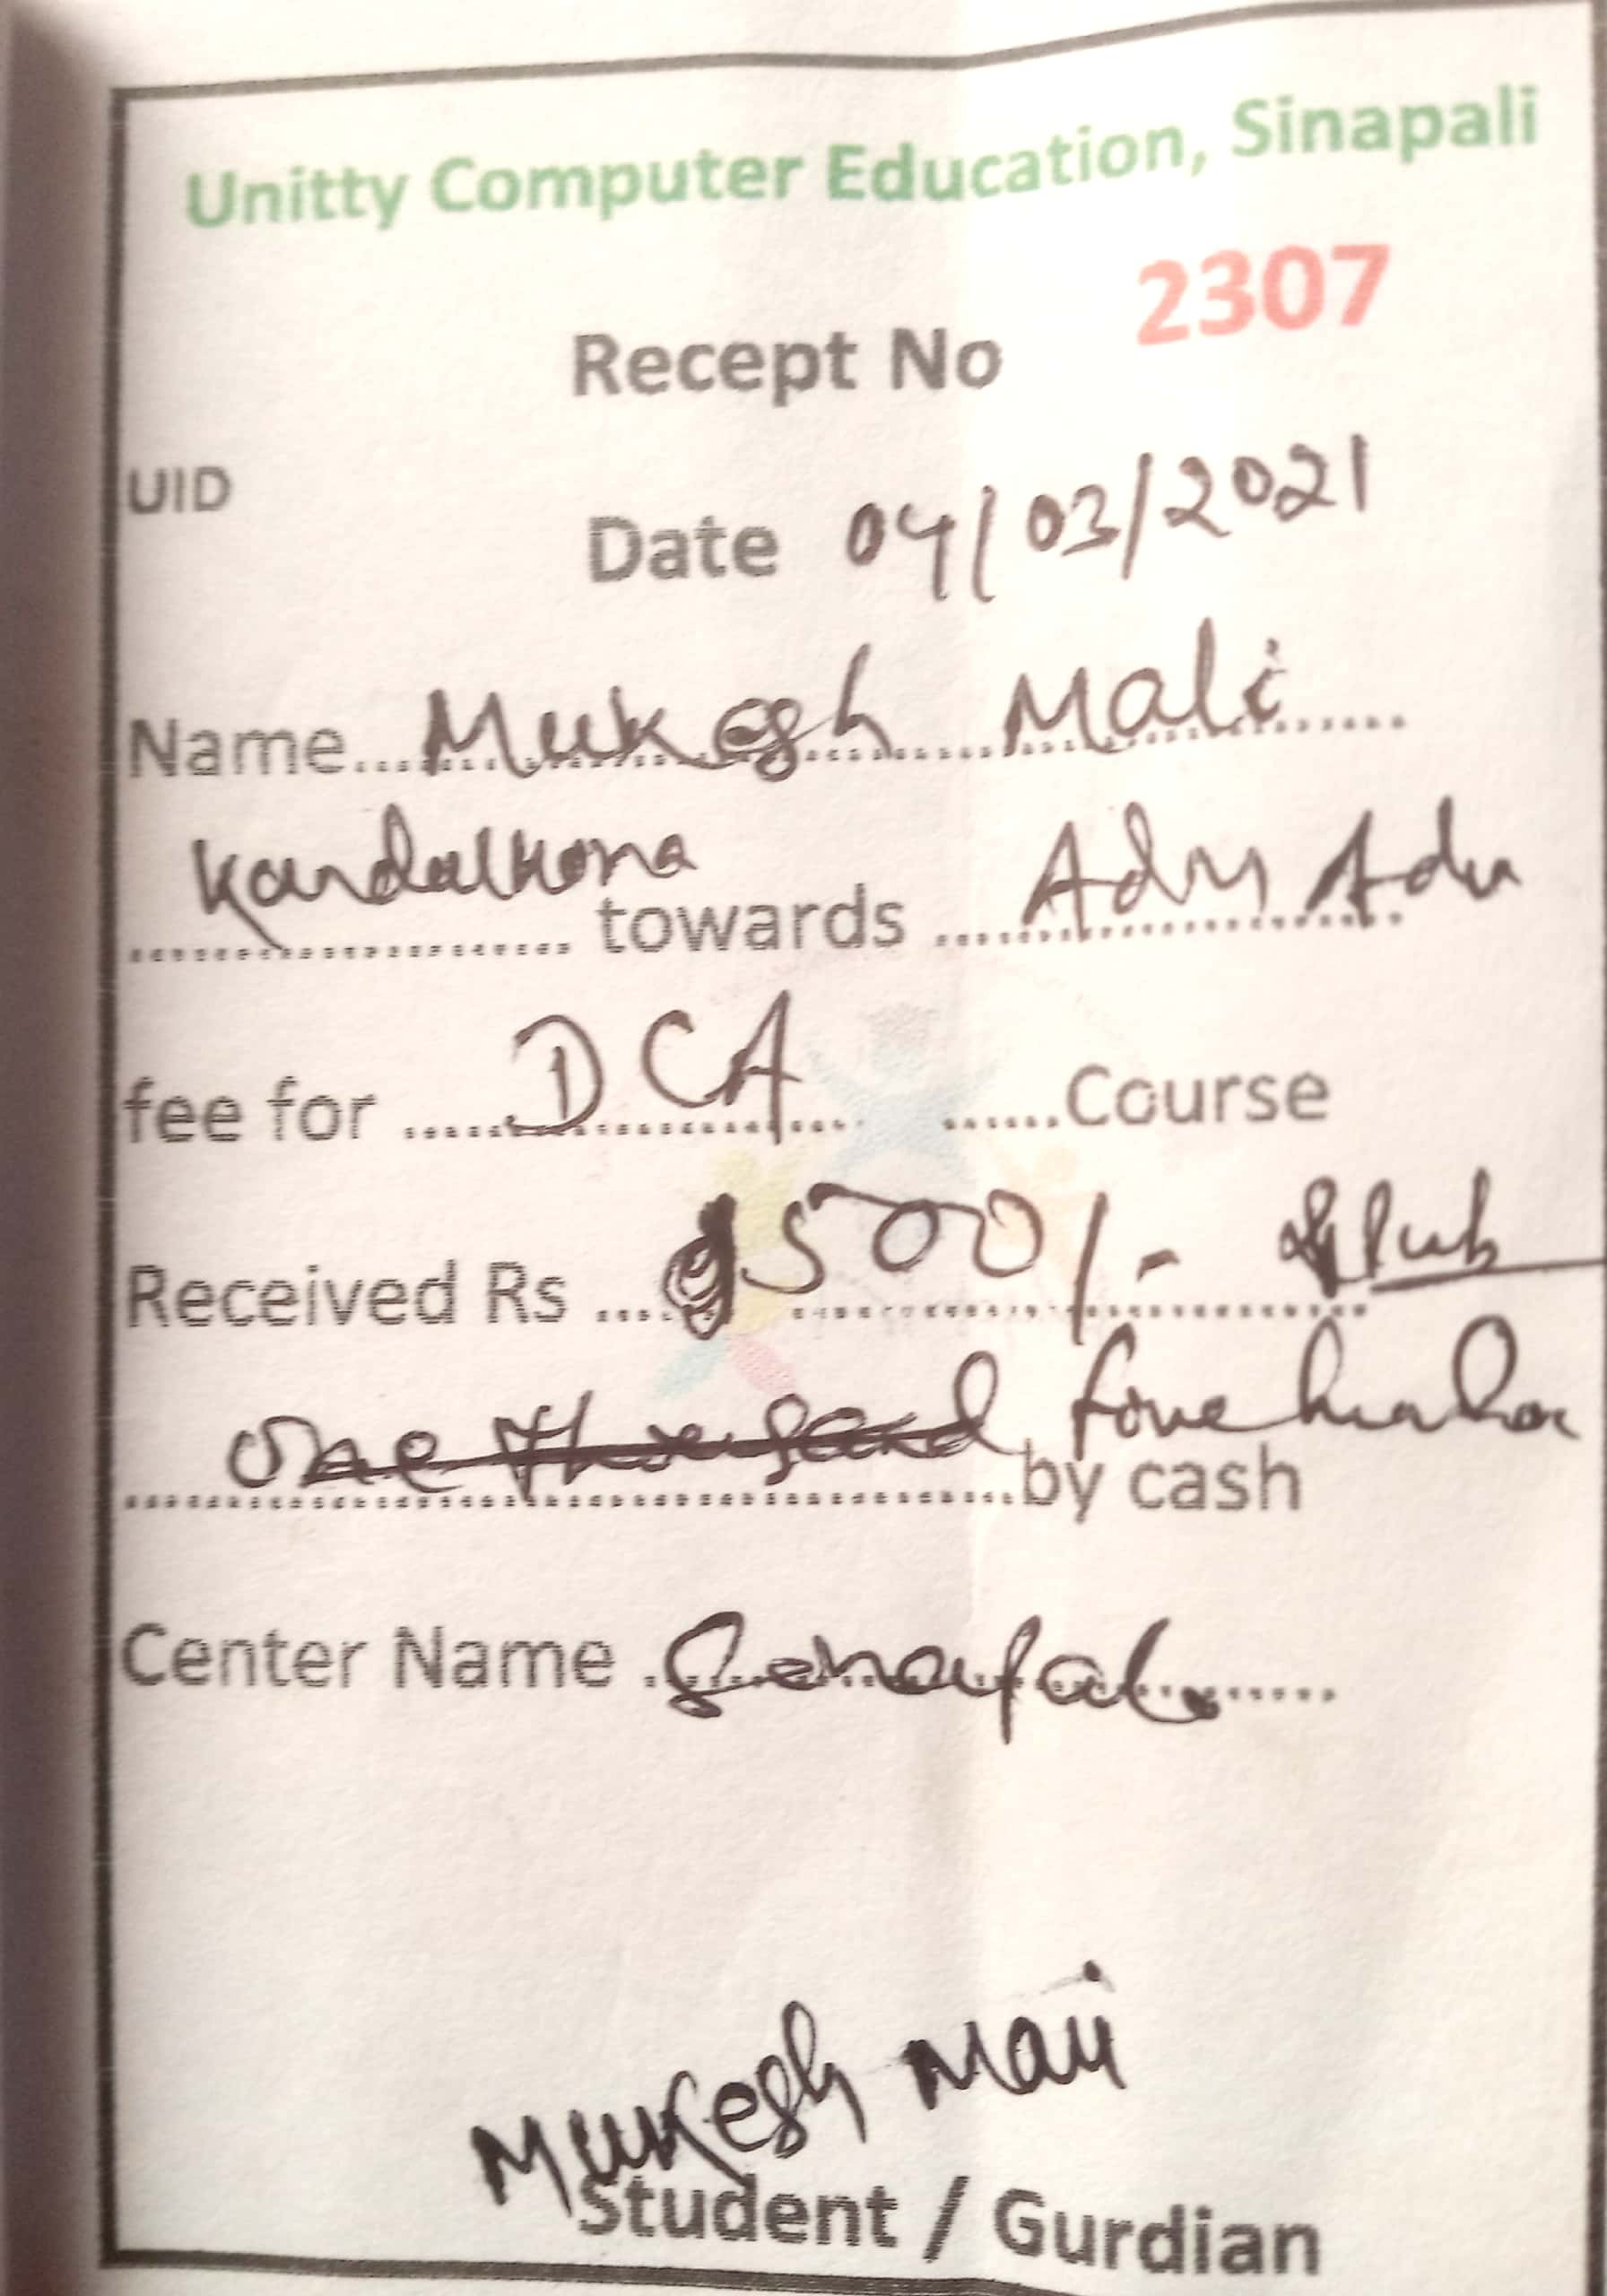 Unitty Computer Education, Sinapali
2307
Recept No
UID
Date 04/03/2021
Name Mukesh Mali
Kandalkona towards Adm Adv
fee for DCA Course
Received Rs 500/-
One thousand five
by cash
Center Name
Mukesh Mali
Student / Gurdian